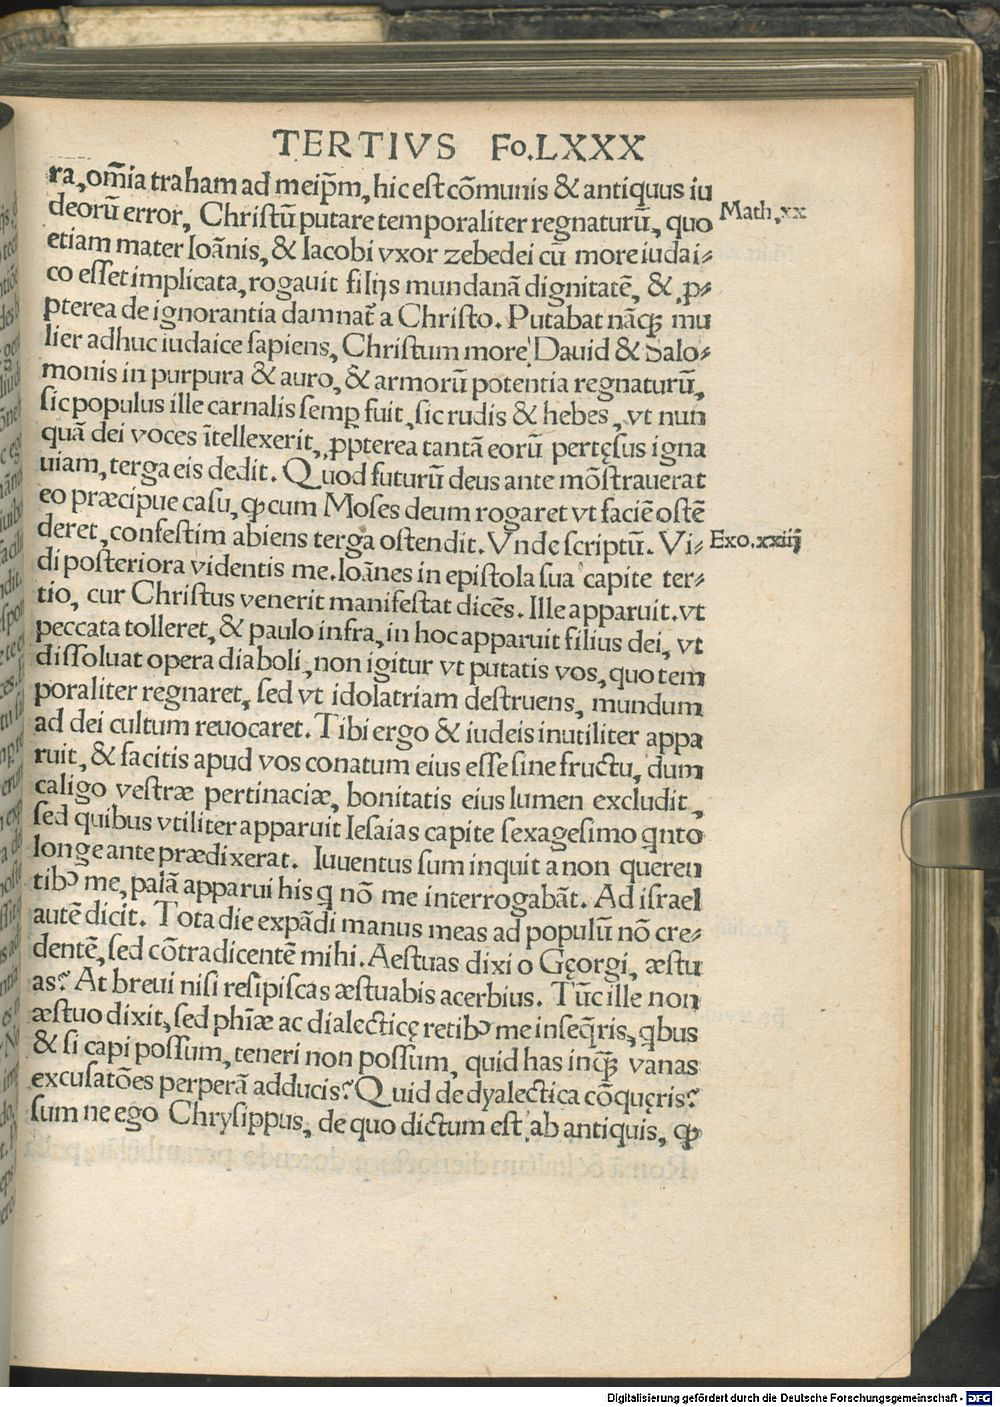 TERTIVS Fo.LXXX
ra, om̄ia traham ad meip̄m, hic est cōmunis & antiquus iu
deorū error, Christū putare temporaliter regnaturū, quo
Math.xx
etiam mater Ioānis, & Iacobi vxor zebedei cū more iudai⸗
co esset implicata, rogauit filijs mundanā dignitatē, & ꝓ⸗
pterea de ignorantia damnat̄ a Christo. Putabat nāqꝫ mu
lier adhuc iudaice sapiens, Christum more Dauid & Salo⸗
monis in purpura & auro, & armorū potentia regnaturū,
sic populus ille carnalis semꝑ fuit, sic rudis & hebes, vt nun
quā dei voces ītellexerit, ꝓpterea tantā eorū pertęsus igna
uiam, terga eis dedit. Quod futurū deus ante mōstrauerat
eo præcipue casu, ꝙ cum Moses deum rogaret vt faciē ostē
deret, confestim abiens terga ostendit. Vnde scriptū. Vi⸗
Exo.xxiij
di posteriora videntis me. Ioānes in epistola sua capite ter⸗
tio, cur Christus venerit manifestat dicēs. Ille apparuit. vt
peccata tolleret, & paulo infra, in hoc apparuit filius dei, vt
dissoluat opera diaboli, non igitur vt putatis vos, quo tem
poraliter regnaret, sed vt idolatriam destruens, mundum
ad dei cultum reuocaret. Tibi ergo & iudeis inutiliter appa
ruit, & facitis apud vos conatum eius esse sine fructu, dum
caligo vestræ pertinaciæ, bonitatis eius lumen excludit,
sed quibus vtiliter apparuit Iesaias capite sexagesimo qnto
longe ante prædixerat. Iuuentus sum inquit a non queren
tibꝰ me, palā apparui his q nō me interrogabāt. Ad israel
autē dicit. Tota die expādi manus meas ad populū nō cre⸗
dentē, sed cōtradicentē mihi. Aestuas dixi o Gęorgi, æstu
as? At breui nisi resipiscas æstuabis acerbius. Tūc ille non
æstuo dixit, sed phīæ ac dialecticę retibꝰ me inseqris, qbus
& si capi possum, teneri non possum, quid has inqꝫ vanas
excusatōes perperā adducis? Quid de dyalectica cōquęris?
sum ne ego Chrysippus, de quo dictum est ab antiquis, ꝙ
Digitalisierung gefördert durch die Deutsche Forschungsgemeinschaft - DFG